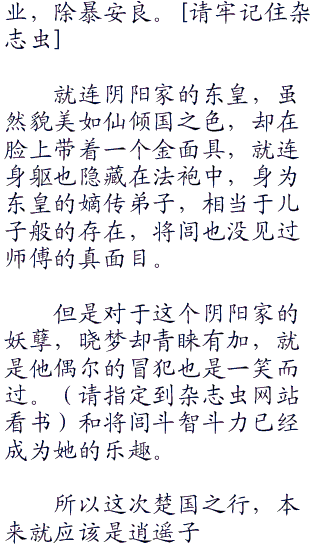 业，除暴安良。[请牢记住杂
志虫]
就连阴阳家的东皇，虽
然貌美如仙倾国之色，却在
脸上带着一个金面具，就连
身躯也隐藏在法袍中，身为
东皇的嫡传弟子，相当于儿
子般的存在，将闾也没见过
师傅的真面目。
但是对于这个阴阳家的
妖孽，晓梦却青睐有加，就
是他偶尔的冒犯也是一笑而
过。（请指定到杂志虫网站
看书）和将闾斗智斗力已经
成为她的乐趣。
所以这次楚国之行，本
来就应该是逍遥子